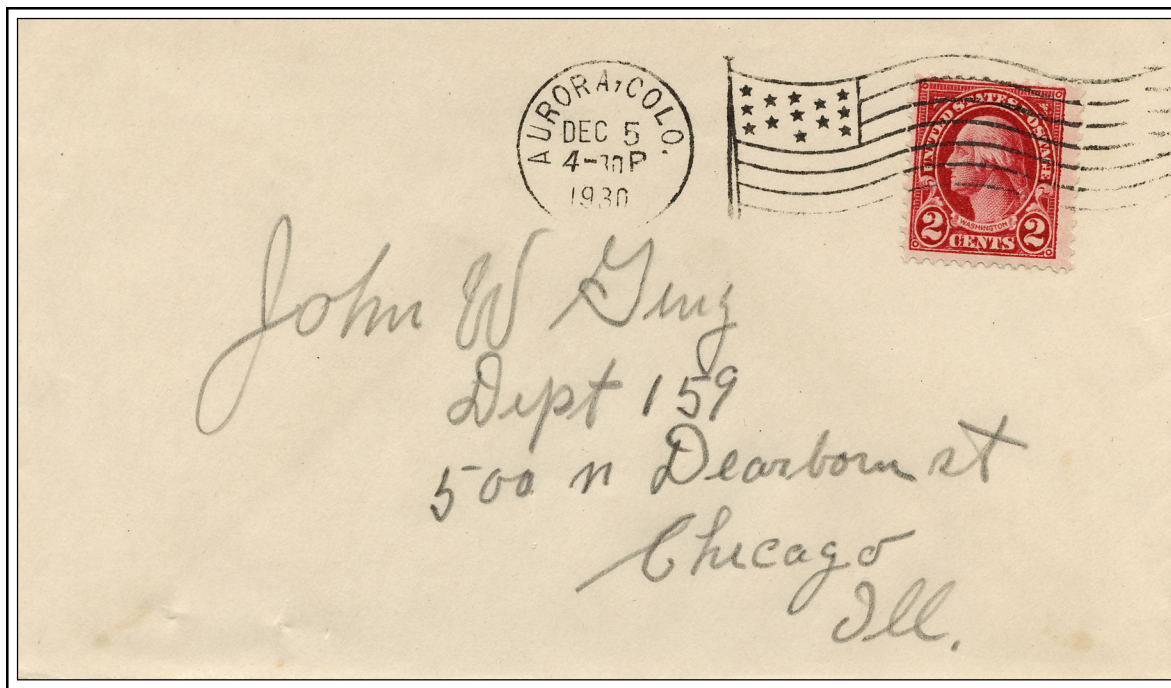 AURORA, COLO.
DEC 5
4-30P
1930
UNITED STATES POSTAGE
WASHINGTON
2 CENTS 2
John W
Dept 159
500 n Dearborn st
Chicago
Ill.